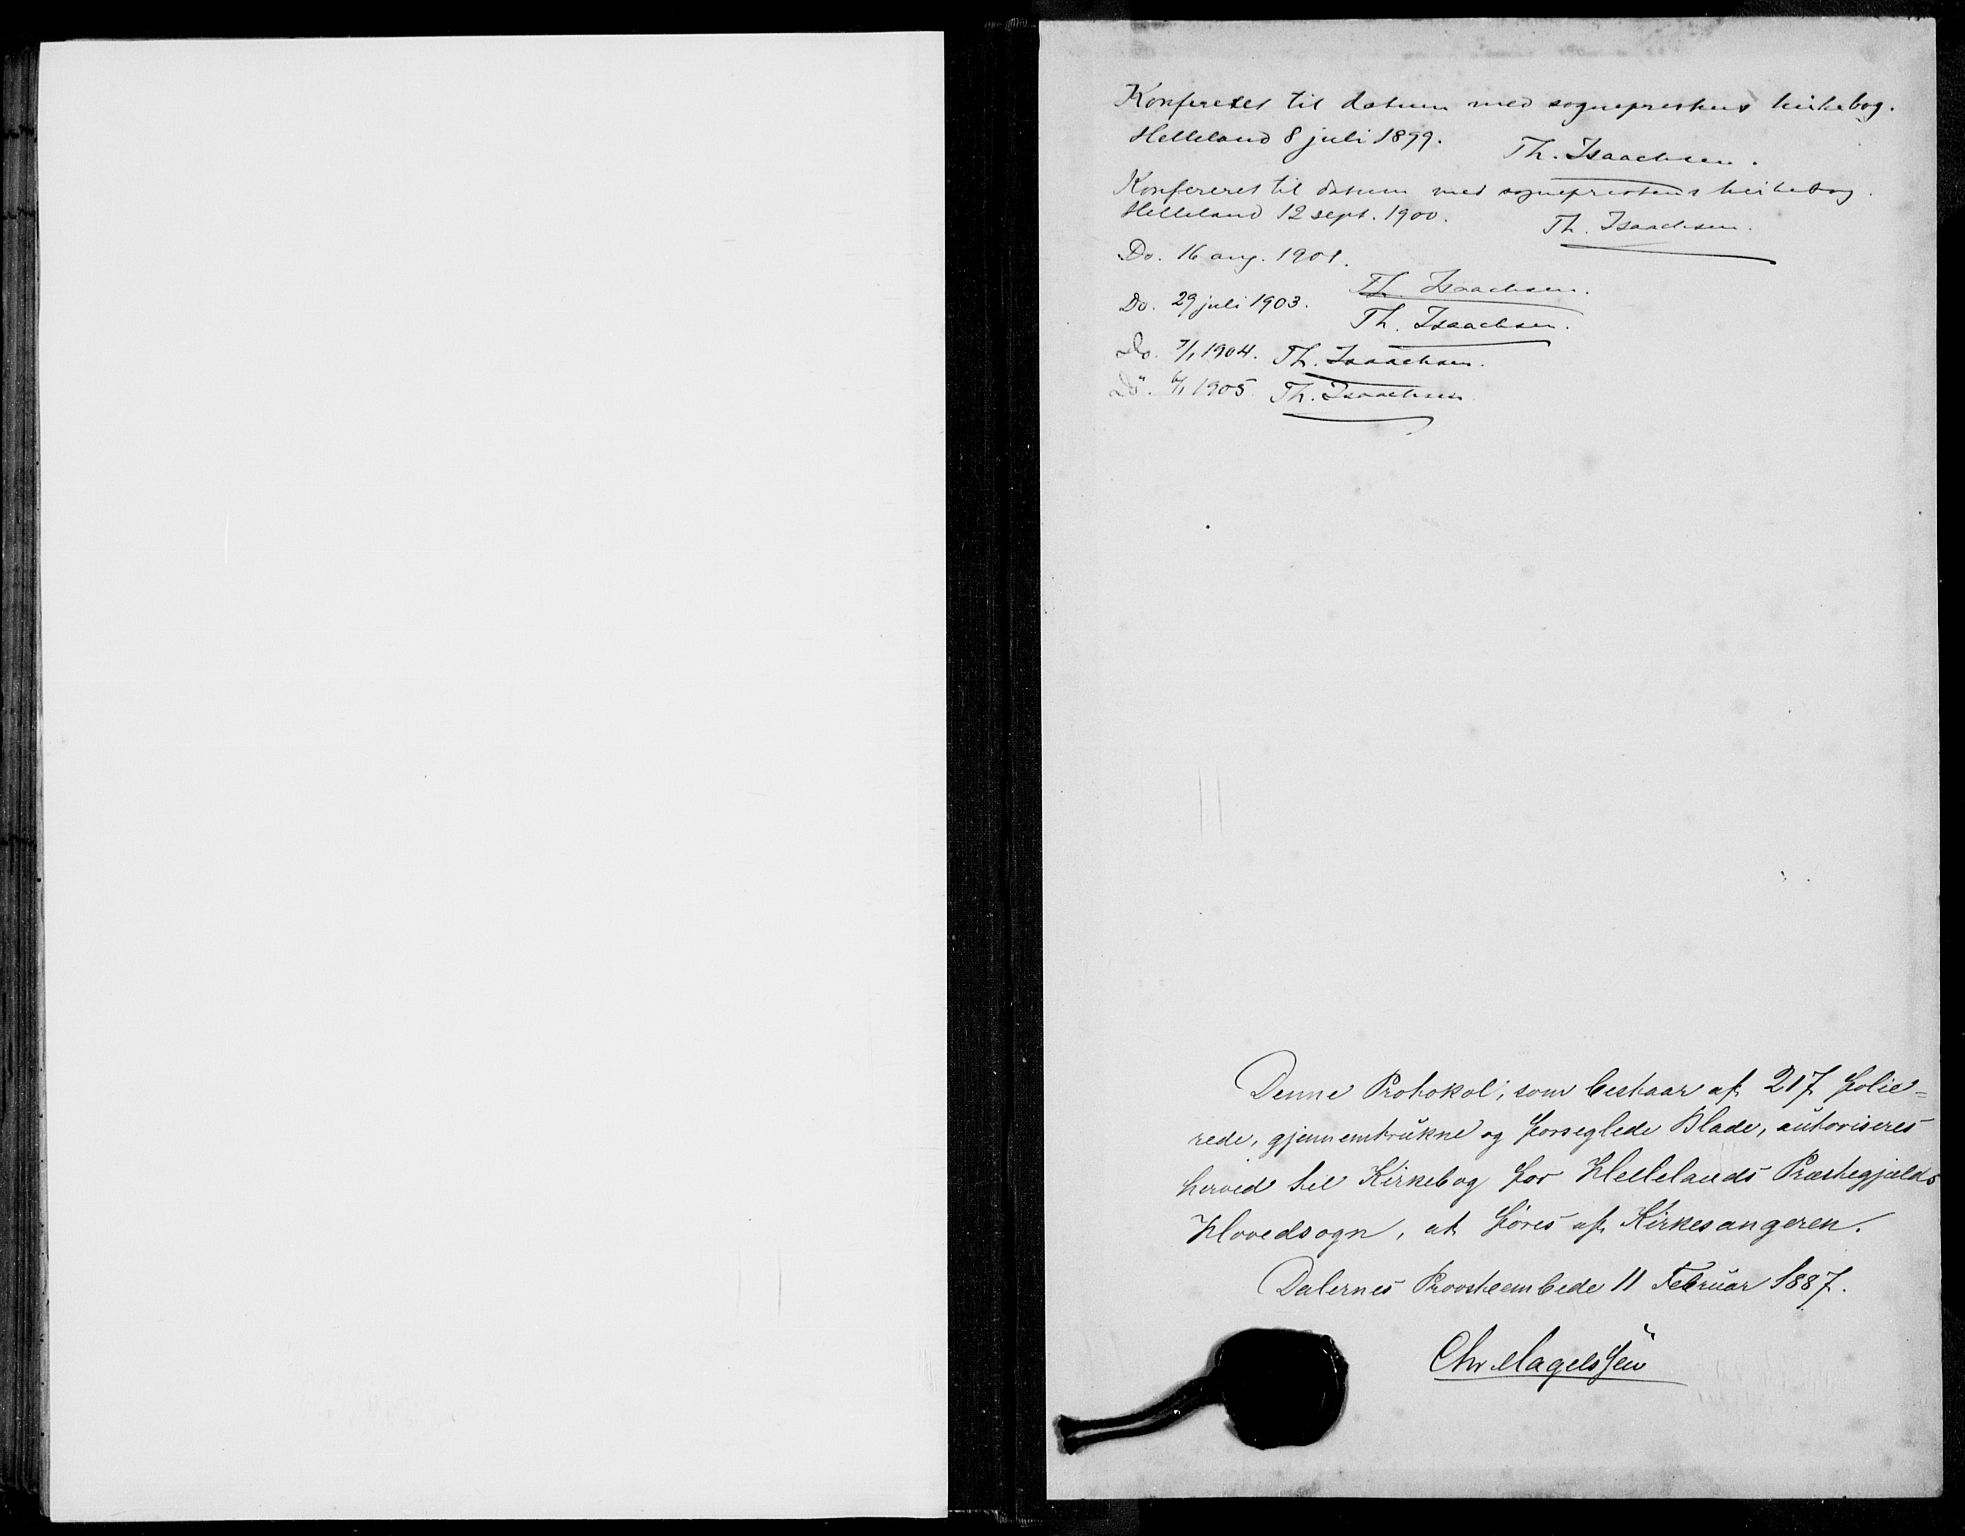 Konfereret til datum med sogneprestens kirkebog.
Helleland 8 juli 1899.
Th. Isaachsen.
Konfereret til datum med sogneprestens kirkebog.
Helleland 12 sept. 1900.
Th. Isaachsen.
Do. 16 aug. 1901.
Th. Isaachsen.
Do. 29 juli 1903.
Th. Isaachsen.
Do. 7/1 1904. Th. Isaachsen.
Do. 6/1 1905. Th. Isaachsen.
Denne Protokol, som bestaar af 217 folie=
rede, gjennemtrukne og forseglede Blade, autoriseres
herved til Kirkebog for Hellelands Præstegjælds
Hovedsogn, at føres af Kirkesangeren.
Dalernes Provsteembede 11 Februar 1887.
Chr. Magelssen